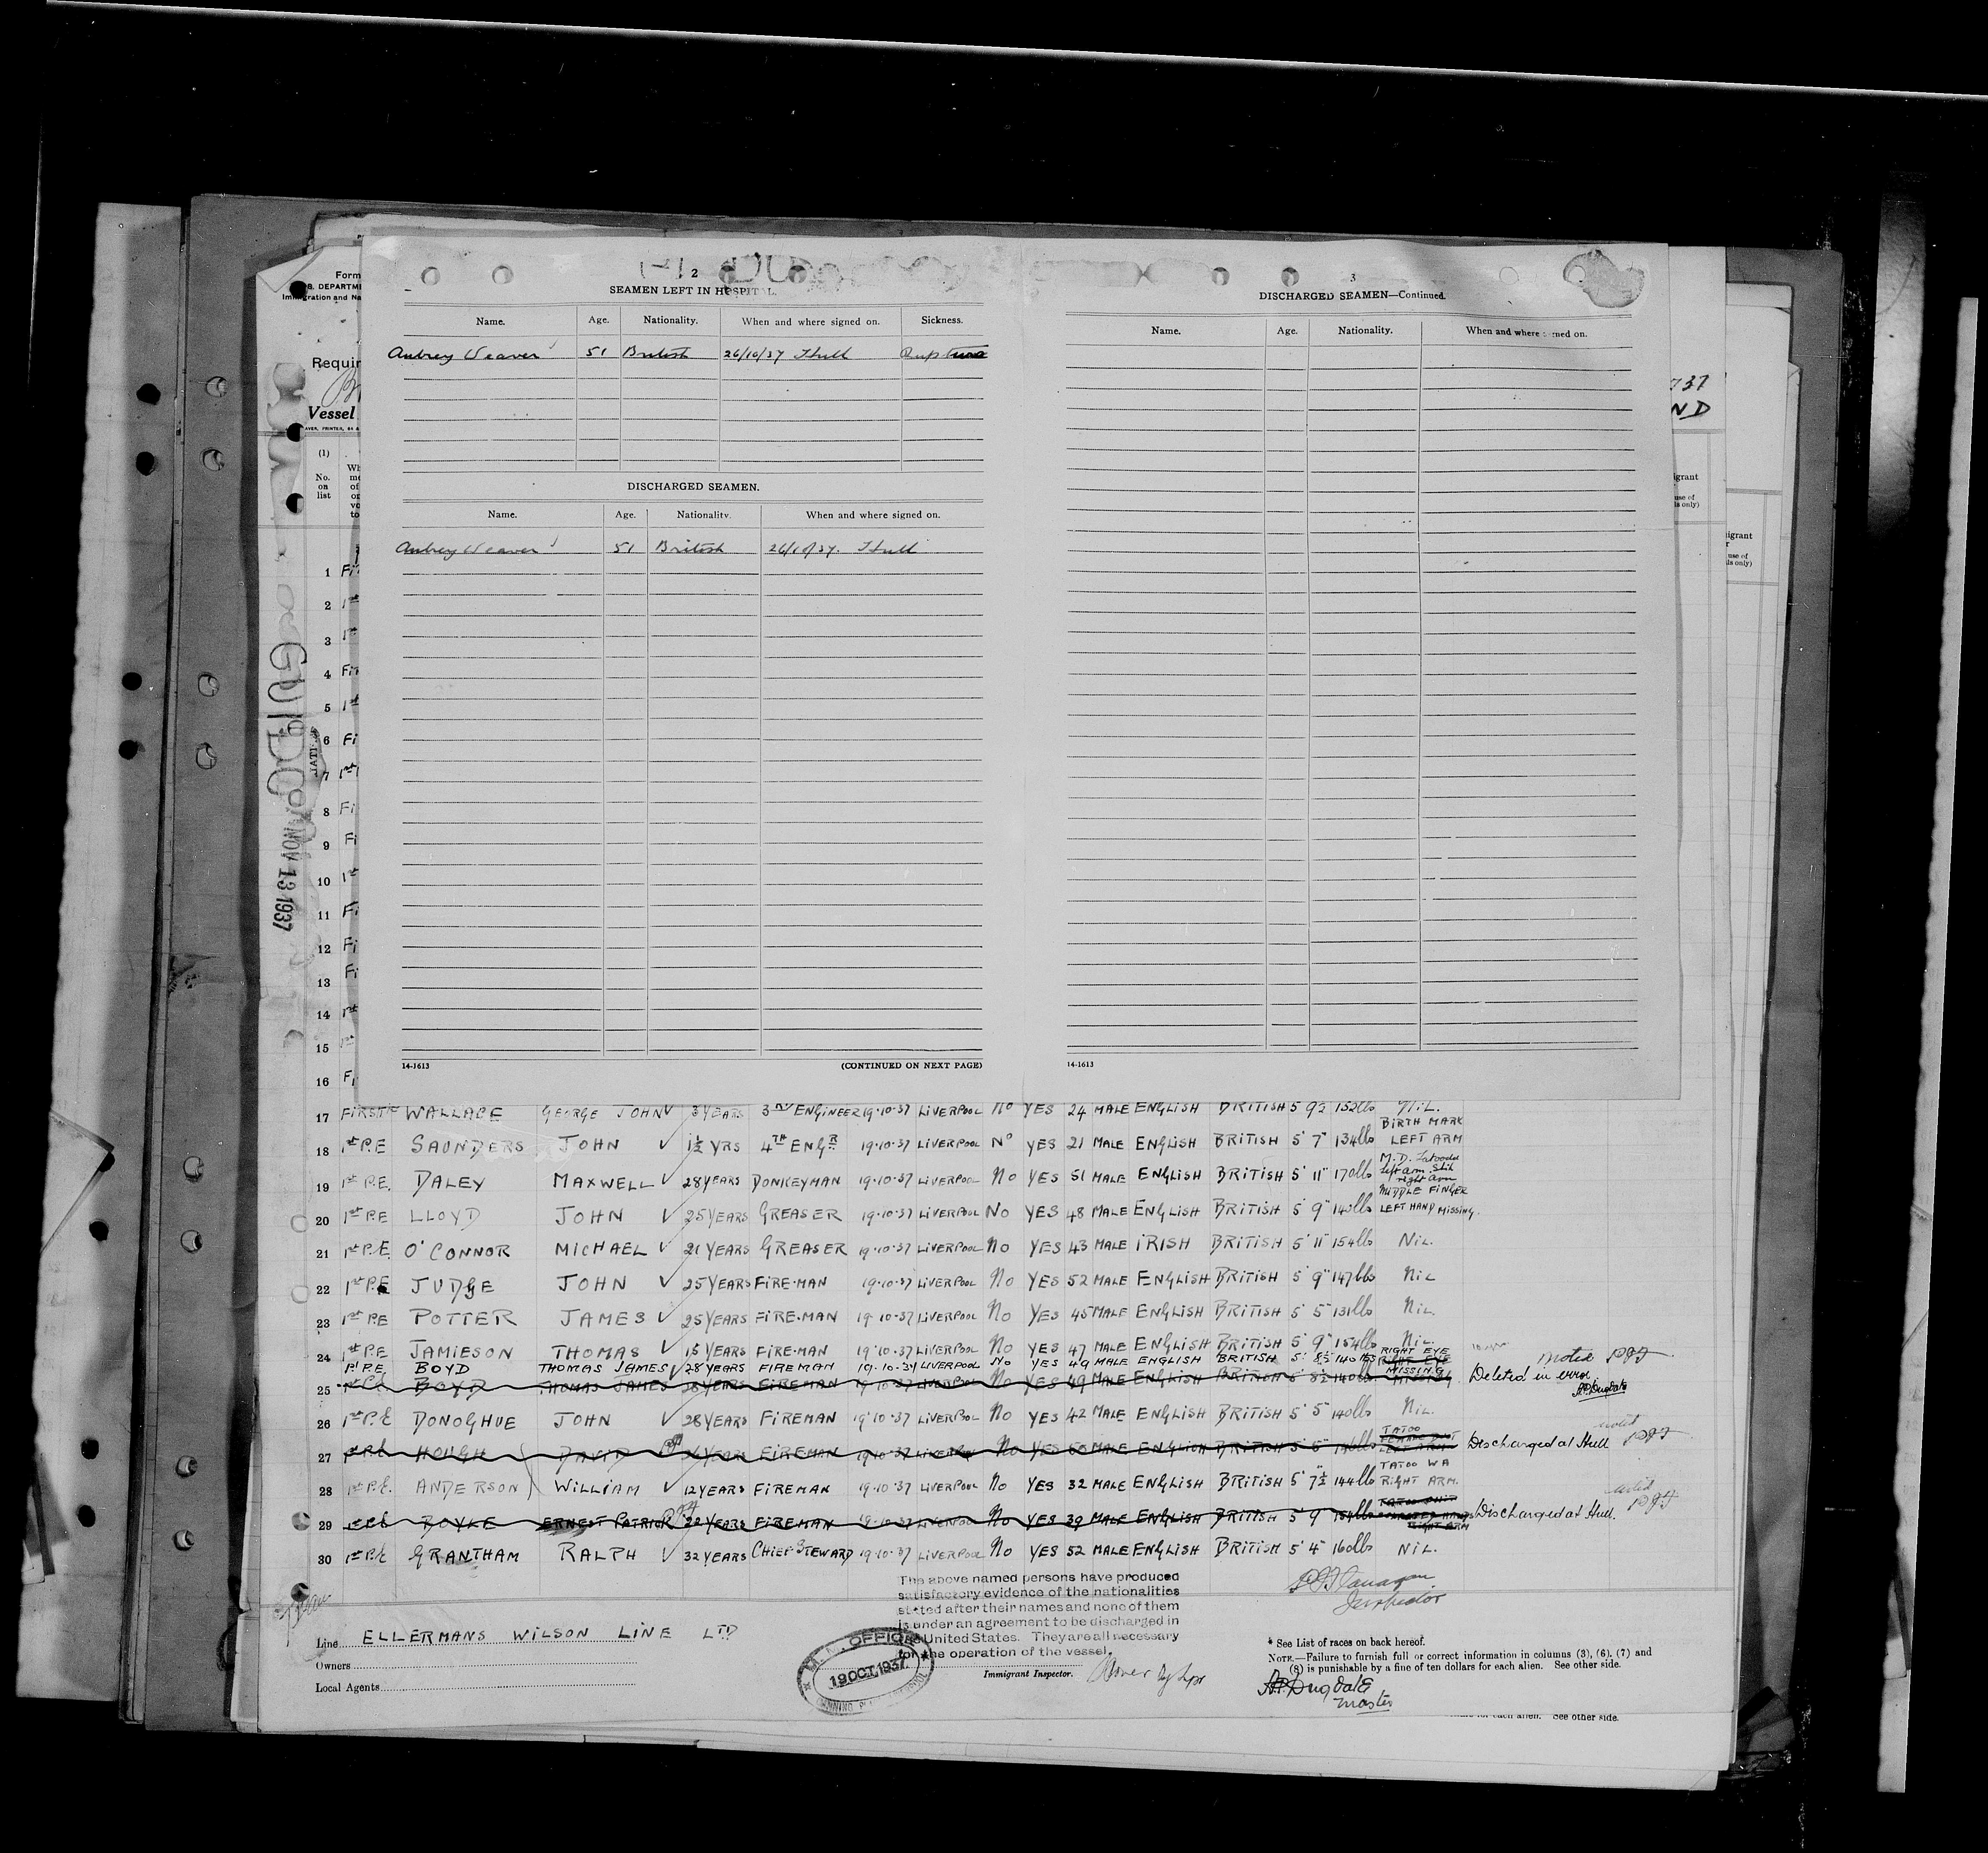 2
SEAMEN LEFT IN HOSPITAL.
Name. Age. Nationality. When and where signed on. Sickness.
Aubrey Weaver 51 British 26/10/37 Hull Rupture
DISCHARGED SEAMEN.
Name. Age. Nationality. When and where signed on.
Aubrey Weaver 51 British 26/10/37. Hull
14-1613
(CONTINUED ON NEXT PAGE)
3
DISCHARGED SEAMEN—Continued.
Name. Age. Nationality. When and where signed on.
14-1613
Form
S. DEPARTME
Immigration and Na
Requir
Vessel
(1)
No.
on
list
NOV 13 1937
37
ND
igrant
use of
ls only)
igrant
r
use of
ls only)
1 Fi
2 1st
3 1st
4 Fi
5 1st
6 Fi
7 1st
8 Fi
9 Fi
10 1st
11 Fi
12 Fi
13 Fi
14 1st
15 1st
16 Fi
17 FIRST WALLACE GEORGE JOHN 3 YEARS 3RD ENGINEER 19·10·37 LIVERPOOL No YES 24 MALE ENGLISH BRITISH 5' 9½ 152lbs NIL.
18 1st P.E SAUNDERS JOHN 1½ YRS 4TH ENGR 19·10·37 LIVERPOOL No YES 21 MALE ENGLISH BRITISH 5' 7" 134lbs BIRTH MARK LEFT ARM
19 1st P.E. DALEY MAXWELL 28 YEARS DONKEYMAN 19·10·37 LIVERPOOL No YES 51 MALE ENGLISH BRITISH 5' 11" 170lbs M.D. left arm. right arm
20 1st P.E LLOYD JOHN 25 YEARS GREASER 19·10·37 LIVERPOOL No YES 48 MALE ENGLISH BRITISH 5' 9" 140lbs MIDDLE FINGER LEFT HAND MISSING.
21 1st P.E. O'CONNOR MICHAEL 21 YEARS GREASER 19·10·37 LIVERPOOL No YES 43 MALE IRISH BRITISH 5' 11" 154lbs NIL.
22 1st P.E JUDGE JOHN 25 YEARS FIRE·MAN 19·10·37 LIVERPOOL No YES 52 MALE ENGLISH BRITISH 5' 9" 147lbs NIL
23 1st P.E POTTER JAMES 25 YEARS FIRE·MAN 19·10·37 LIVERPOOL No YES 45 MALE ENGLISH BRITISH 5' 5" 131lbs NIL.
24 1st P.E JAMIESON THOMAS 15 YEARS FIRE·MAN 19·10·37 LIVERPOOL No YES 47 MALE ENGLISH BRITISH 5' 9" 154lbs NIL.
1st P.E. BOYD THOMAS JAMES 28 YEARS FIREMAN 19·10·37 LIVERPOOL No YES 49 MALE ENGLISH BRITISH 5' 8½ 140 lbs RIGHT EYE MISSING noted
25 1st P.E. BOYD THOMAS JAMES 28 YEARS FIREMAN 19·10·37 LIVERPOOL No YES 49 MALE ENGLISH BRITISH 5' 8½ 140lbs RIGHT EYE MISSING Deleted in error. A.P. Dugdale
26 1st P.E DONOGHUE JOHN 28 YEARS FIREMAN 19·10·37 LIVERPOOL No YES 42 MALE ENGLISH BRITISH 5' 5" 140lbs NIL.
27 1st P.E HOUGH DAVID YEARS FIREMAN 19·10·37 LIVERPOOL No YES 60 MALE ENGLISH BRITISH 5' 5" TATOO LEFT ARM Discharged at Hull noted
28 1st P.E. ANDERSON WILLIAM 12 YEARS FIREMAN 19·10·37 LIVERPOOL No YES 32 MALE ENGLISH BRITISH 5' 7½ 144lbs TATOO WA RIGHT ARM.
29 1st P.E BOYKE ERNEST PATRICK 22 YEARS FIREMAN 19·10·37 LIVERPOOL No YES 39 MALE ENGLISH BRITISH 5' 9" 154lbs TATOO SHIP RIGHT ARM Discharged at Hull. noted
30 1st P.E GRANTHAM RALPH 32 YEARS CHIEF STEWARD 19·10·37 LIVERPOOL No YES 52 MALE ENGLISH BRITISH 5' 4" 160lbs NIL.
The above named persons have produced
satisfactory evidence of the nationalities
stated after their names and none of them
is under an agreement to be discharged in
the United States. They are all necessary
for the operation of the vessel.
Inspector
Line ELLERMANS WILSON LINE LTD
Owners
Local Agents
M. M. OFFICE
19 OCT. 1937
Immigrant Inspector.
* See List of races on back hereof.
NOTE.—Failure to furnish full or correct information in columns (3), (6), (7) and
(8) is punishable by a fine of ten dollars for each alien. See other side.
A.P. Dugdale
Master
for each alien. See other side.